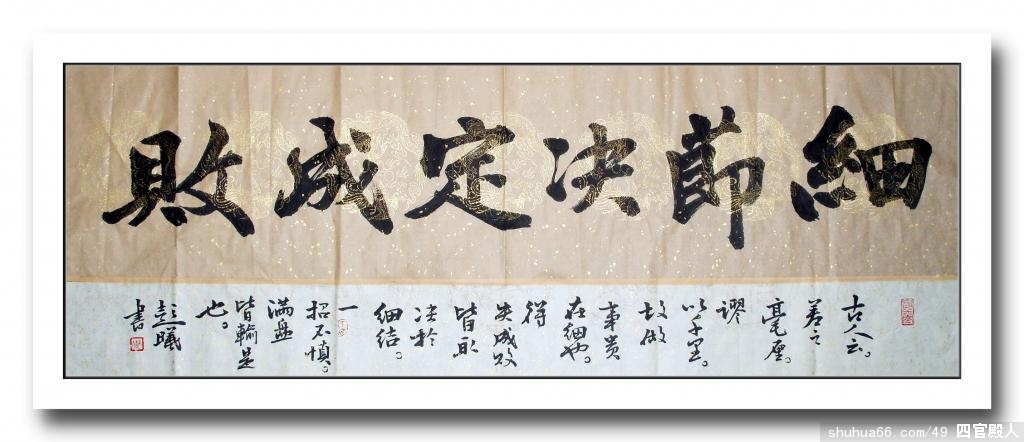 細節决定成敗
古人云。
差之
毫厘。
謬
以千里。
故做
事贵
在细也。
得
失成败
皆取
决於
细结。
一
招不慎。
满盘
皆輸是
也。
曦
书
shuhua66.com/49 四官殿人